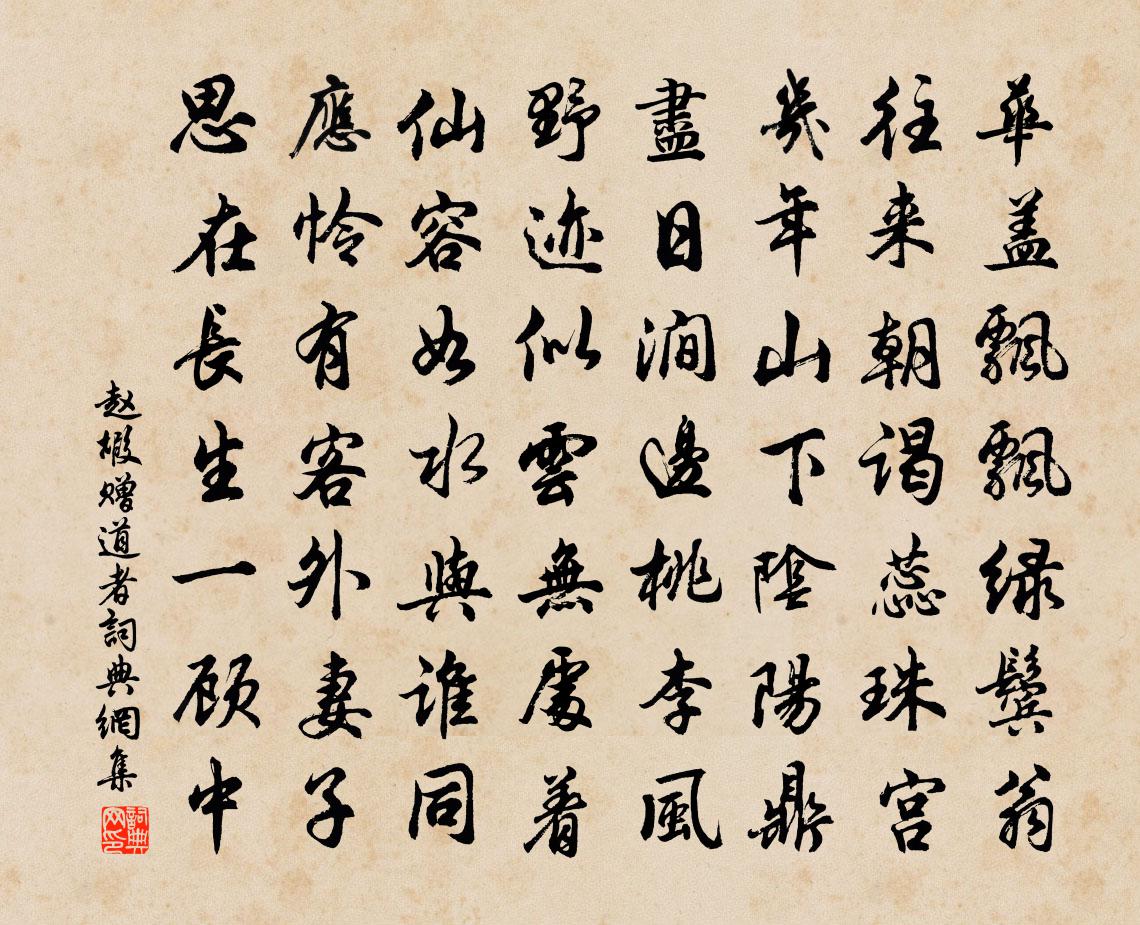 華盖飄飄緑鬢翁
往来朝谒蕊珠宫
幾年山下陰陽鼎
盡日澗邊桃李風
野迹似雲無處着
仙容如水與谁同
應怜有客外妻子
思在長生一顾中
赵嘏赠道者詞典網集
詞典网印